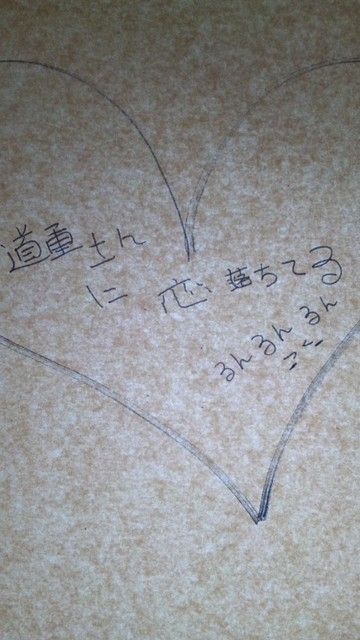 道重さん
に恋落ちてる
るんるんるん